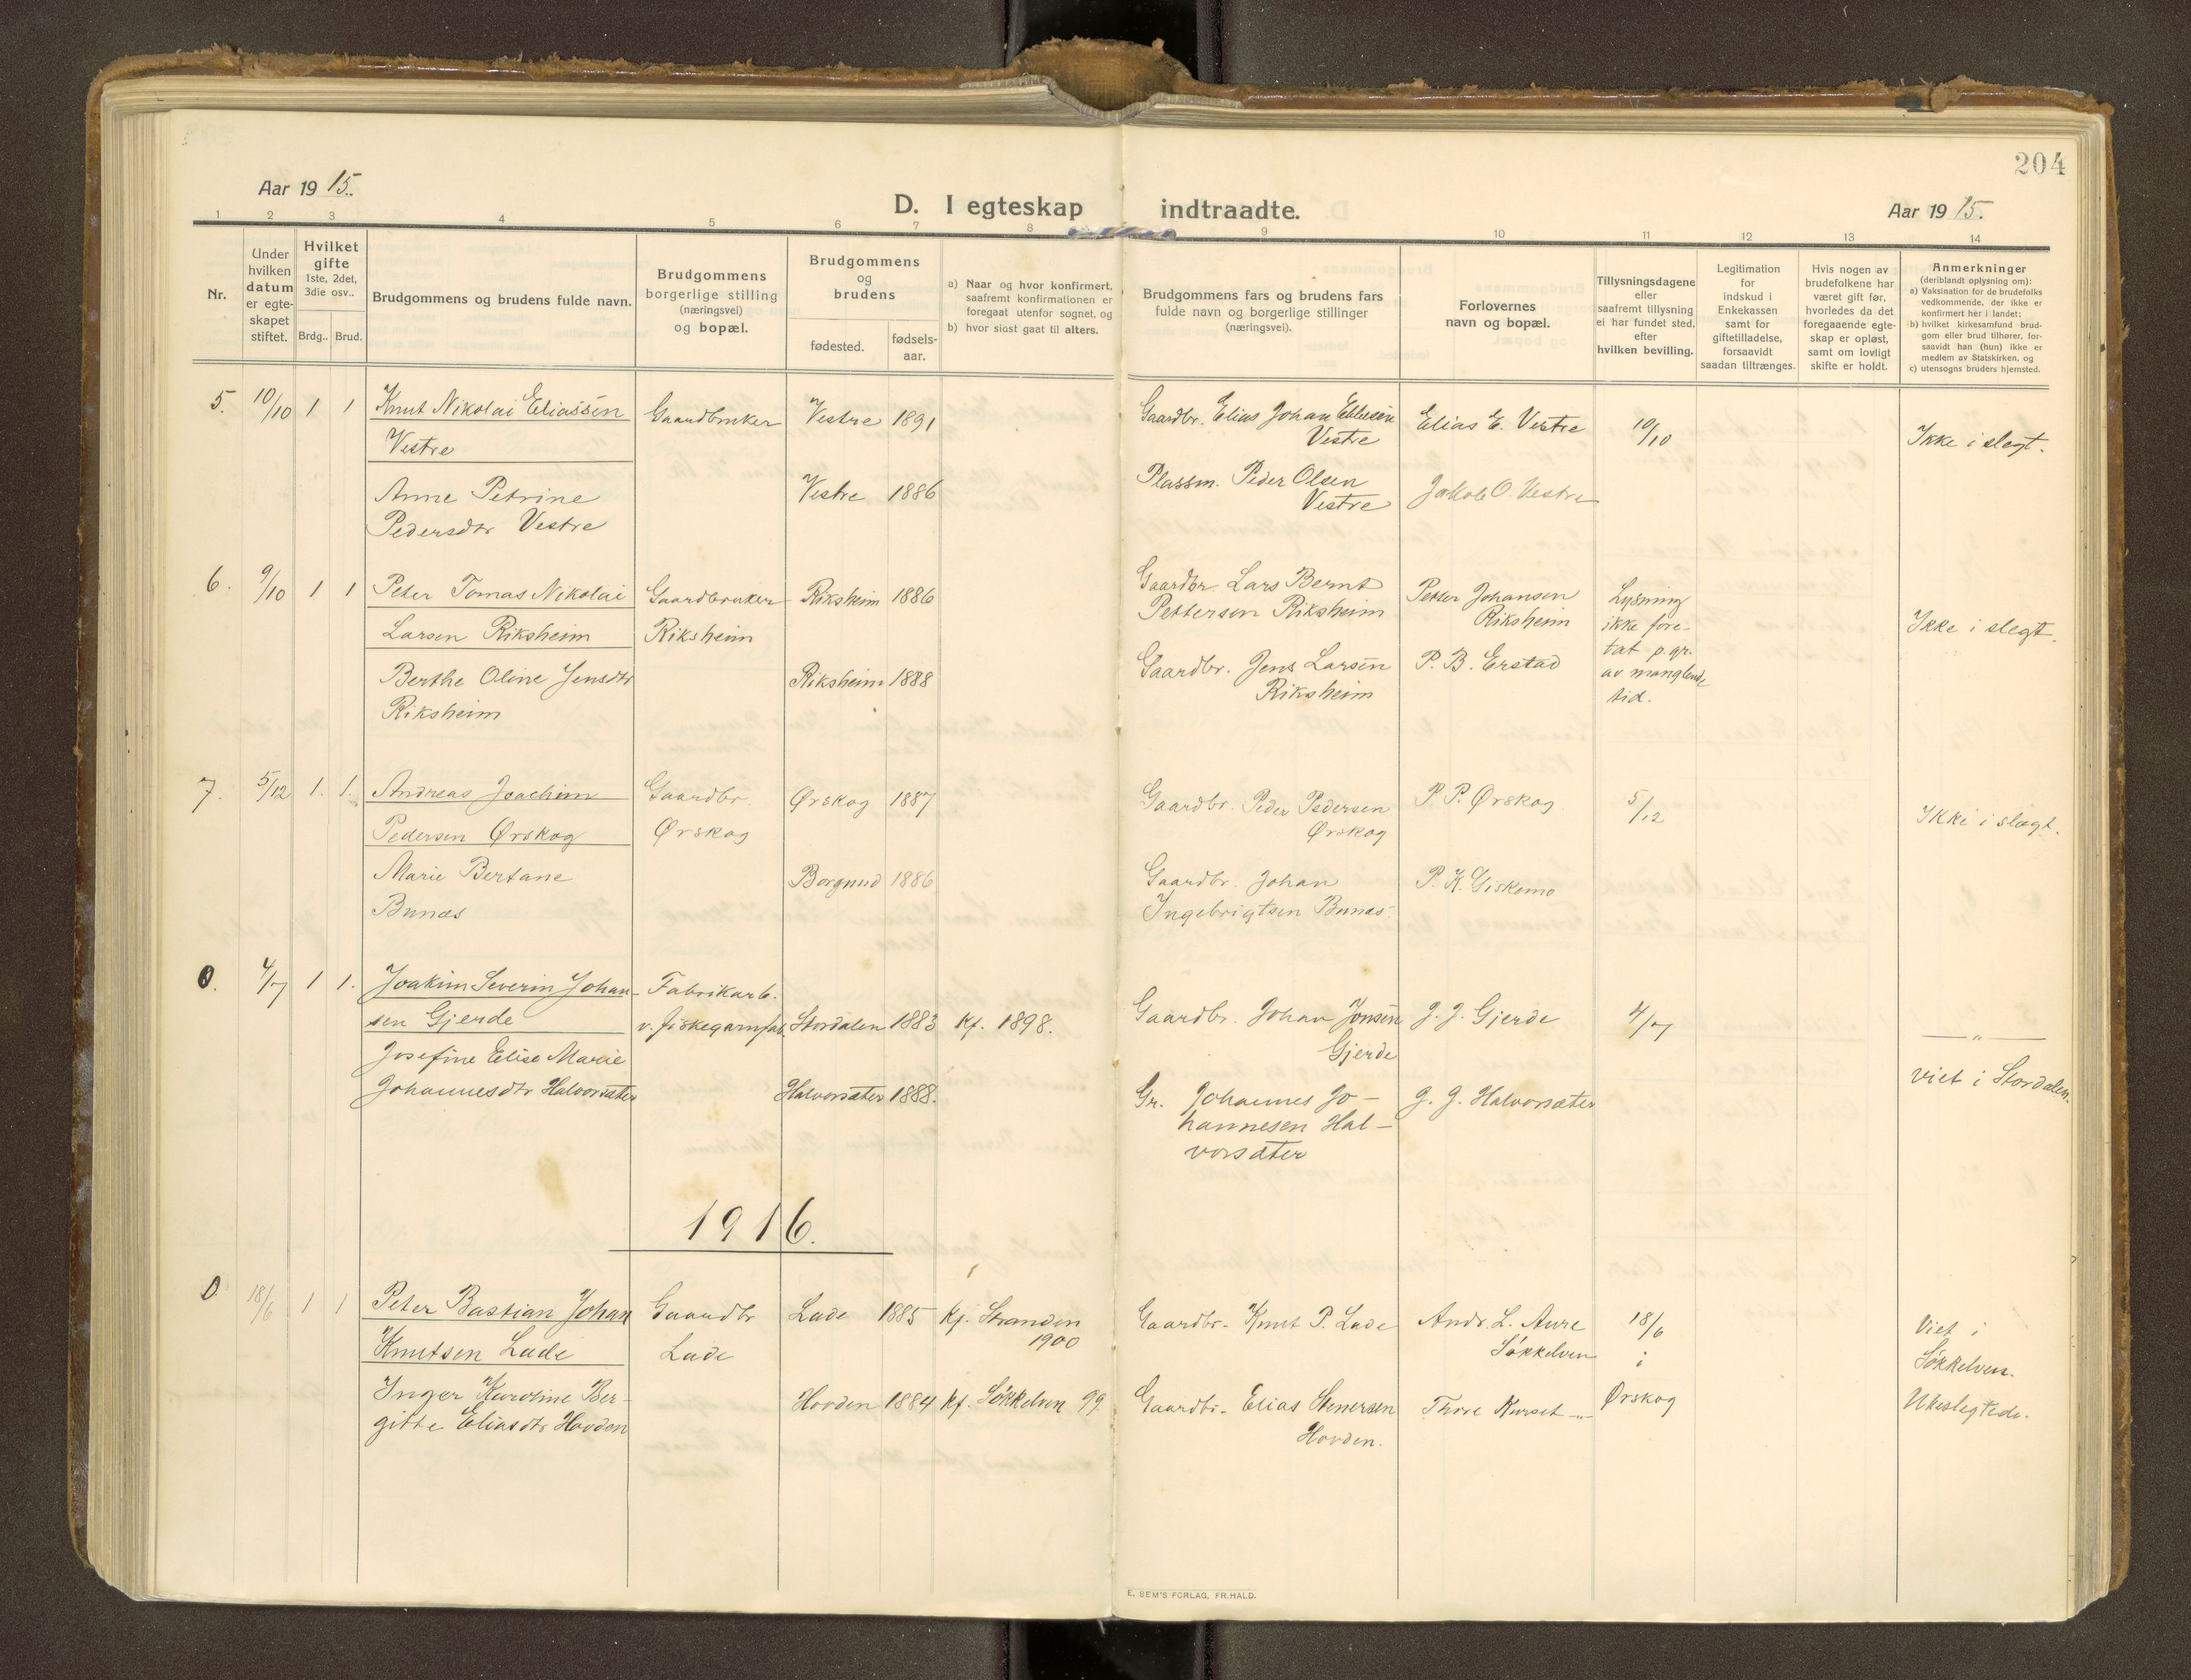 204
Aar 19 15.
D. I egteskap indtraadte.
Aar 19 15.
1 2 3 4 5 6 7 8 9 10 11 12 13 14
Nr.
Under hvilken datum er egte- skapet stiftet.
Hvilket gifte 1ste, 2det, 3die osv..
Brdg.. Brud.
Brudgommens og brudens fulde navn.
Brudgommens borgerlige stilling (næringsvei) og bopæl.
Brudgommens og brudens
fødested.
fødsels- aar.
a) Naar og hvor konfirmert, saafremt konfirmationen er foregaat utenfor sognet, og
b) hvor sidst gaat til alters.
Brudgommens fars og brudens fars fulde navn og borgerlige stillinger (næringsvei).
Forlovernes navn og bopæl.
Tillysningsdagene eller saafremt tillysning ei har fundet sted, efter hvilken bevilling.
Legitimation for indskud i Enkekassen samt for giftetilladelse, forsaavidt saadan tiltrænges.
Hvis nogen av brudefolkene har været gift før, hvorledes da det foregaaende egte- skap er opløst, samt om lovligt skifte er holdt.
Anmerkninger (deriblandt oplysning om):
a) Vaksination for de brudefolks vedkommende, der ikke er konfirmert her i landet;
b) hvilket kirkesamfund brud- gom eller brud tilhører, for- saavidt han (hun) ikke er medlem av Statskirken, og
c) utensogns bruders hjemsted.
5. 10/10 1 1 Knut Nikolai Eliassen Gaardbruker Vestre 1891 Gaardbr. Elias Johan Ellesen Elias E. Vestre 10/10 Ikke i slegt.
Vestre Vestre
Anne Petrine Vestre 1886 Plassm. Peder Olsen Jakob O. Vestre
Pedersdtr Vestre Vestre
6. 9/10 1 1 Peter Tomas Nikolai Gaardbruker Riksheim 1886 Gaardbr. Lars Bernt Petter Johansen Lysning
Larsen Riksheim Riksheim Pettersen Riksheim Riksheim ikke fore- Ikke i slegt.
tat p.gr.
Berthe Oline Jensdtr Riksheim 1888 Gaardbr. Jens Larsen P. B. Erstad av manglende
Riksheim Riksheim tid.
7. 5/12 1. 1. Andreas Joachim Gaardbr. Ørskog 1887 Gaardbr. Peder Pedersen P. P. Ørskog. 5/12 Ikke i slegt.
Pedersen Ørskog Ørskog Ørskog
Marie Bertane Borgund 1886 Gaardbr. Johan P. K. Giskemo
Bunæs Ingebrigtsen Bunæs
0. 4/7 1 1. Joakim Severin Johan- Fabrikarb.
sen Gjerde v. fiskegarnfab. Stordalen 1883 Kf. 1898. Gaardbr. Johan Jonsen J. J. Gjerde 4/7 — „ —
Josefine Elise Marie Gjerde
Johannesdtr Halvorsæter Halvorsæter 1888. Gr. Johannes Jo- J. J. Halvorsæter viet i Stordalen.
hannesen Hal-
vorsæter
1916.
0 18/6 1 1 Peter Bastian Johan Gaardbr Lade 1885 Kf. Stranden Gaardbr. Knut P. Lade Andr. L. Aure 18/6 Viet i
Knutsen Lade Lade 1900 Søkkelven i Søkkelven.
Inger Karoline Ber- Hovden 1884 Kf. Søkkelven 99. Gaardbr. Elias Stenersen Thore Kurset -„- Ørskog Ubeslegtede.
gitte Eliasdtr Hovden Hovden.
E. SEM'S FORLAG, FR.HALD.